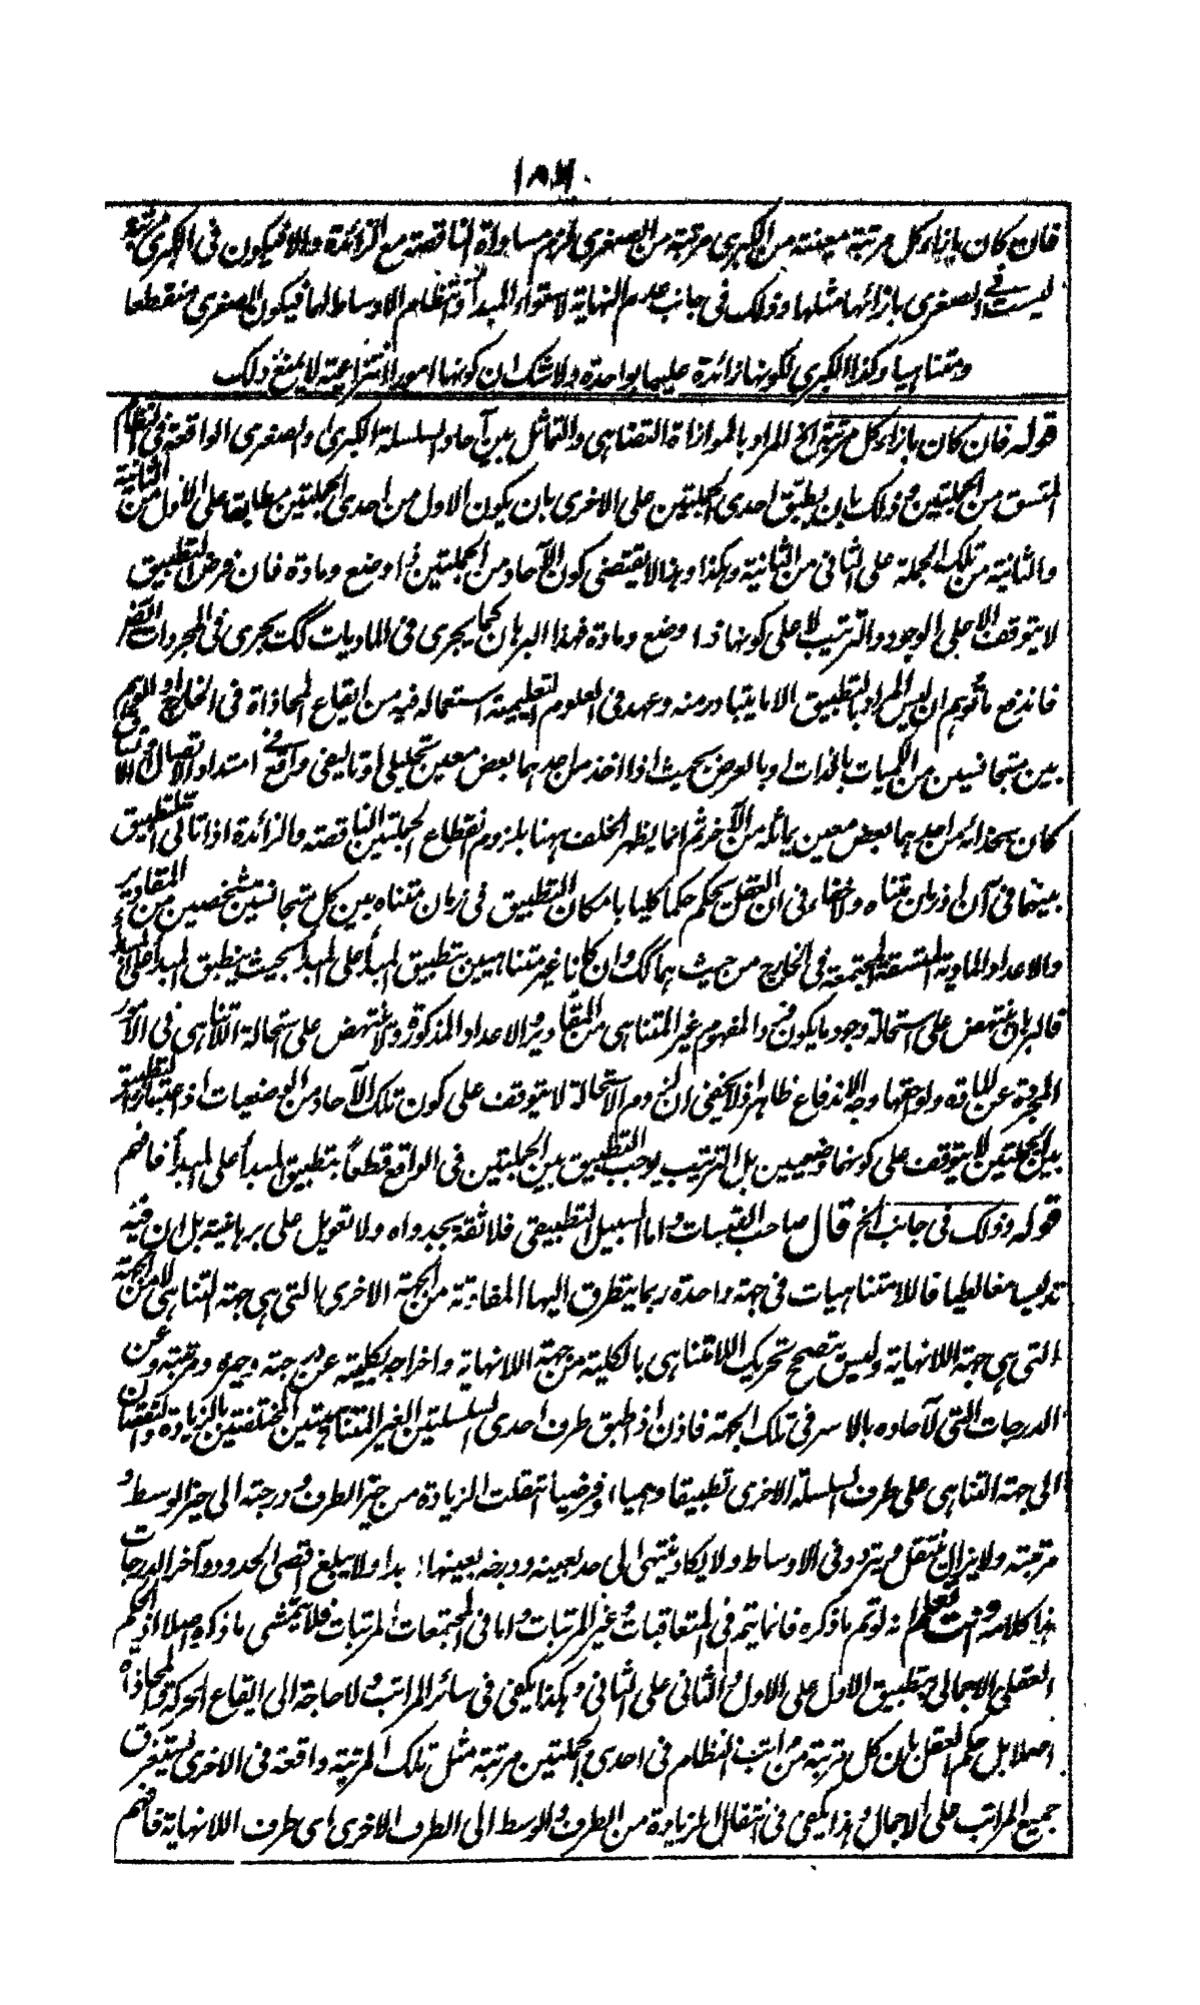 فان كان بازاء كل مرتبة معينة من الكبرى مرتبة من الصغرى لزم مساواة الناقصة مع الزائدة والا فيكون فى الكبرى مرتبة
ليست فى الصغرى بازائها مثلها وذلك فى جانب عدم النهاية لاستواء المبدأ وانتظام الاوساط لها فيكون الصغرى منقطعا
ومتناهيا وكذا الكبرى لكونها زائدة عليها بواحدة ولا شك ان كونها امورا انتزاعية لا يمنع ذلك
قوله فان كان بازاء كل مرتبة الخ المراد بالموازاة التضاهى والتماثل بين آحاد السلسلة الكبرى والصغرى الواقعة فى النظام
المتسق من الجملتين وذلك بان يطبق احدى الجملتين على الاخرى بان يكون الاول من احدى الجملتين مطابقا على الاول من الثانية
والثانية من تلك الجملة على الثانى من الثانية وهكذا وهذا لا يقتضى كون الآحاد من الجملتين ذا وضع ومادة فان فرض التطبيق
لا يتوقف الا على الوجود والترتيب لا على كونها ذا وضع ومادة فهذا البرهان كما يجرى فى الماديات كك يجرى فى المجردات
فاندفع ما توهم ان ليس المراد بالتطبيق الا ما يتبادر منه وعهد فى العلوم التعليمية استعماله فيه من ايقاع المحاذاة فى الخارج او الوهم
بين متجانسين من الكميات بالذات او بالعرض بحيث اذا اخذ من احدهما بعض معين تحليلى او تاليفى واقع فى امتداد الاتصال
كان بحذائه من احدهما بعض معين يماثله من الآخر ثم انما يظهر الخلف ههنا بلزوم انقطاع الجملتين الناقصة والزائدة اذا تأتى التطبيق
بينهما فى آن او زمان متناه ولا خفاء فى ان العقل يحكم حكما كليا بامكان التطبيق فى زمان متناه بين كل متجانسين متشخصين من المقادير
والاعداد المادية المتسقة المجتمعة فى الخارج من حيث هما كك وان كانا غير متناهيين بتطبيق المبدأ على المبدأ بحيث ينطبق المبدأ على المبدأ
فالبرهان ينتهض على استحالة وجود ما يكون فرد المفهوم غير المتناهى من المقادير والاعداد المذكورة ولا ينتهض على استحالة اللاتناهى فى الامور
المجردة عن المادة ولواحقها وجه الاندفاع ظاهر اذ لا يخفى ان لزوم الاستحالة لا يتوقف على كون تلك الآحاد من الوضعيات اذ اعتبار التطبيق
بين الجملتين لا يتوقف على كونهما وضعيين بل الترتيب يوجب التطبيق بين الجملتين فى الواقع قطعا بتطبيق المبدأ على المبدأ فافهم
قوله وذلك فى جانب الخ قال صاحب القبسات واما السبيل التطبيقى فلا ثقة بجدواه ولا تعويل على برهانيته بل ان فيه
تدليسا مغالطيا فاللامتناهيات فى جهة واحدة ربما يتطرق اليها المفاوتة من الجهة الاخرى التى هى جهة التناهى لا من الجهة
التى هى جهة اللانهاية وليس يتصحح تحريك اللامتناهى بالكلية من جهة اللانهاية واخراجه بكليته عن جهته وحيزه ومرتبته وعن
الدرجات التى لآحاده بالاسر فى تلك الجهة فاذن اذا طبق طرف احدى السلسلتين الغير المتناهيتين المختلفتين بالزيادة والنقصان
الى جهة التناهى على طرف السلسلة الاخرى تطبيقا وهميا او فرضيا انتقلت الزيادة من حيز الطرف ودرجته الى حيز الوسط و
مرتبته ولا يزال ينتقل ويتردد فى الاوساط ولا يكاد ينتهى الى حد بعينه ودرجة بعينها ابدا ولا يبلغ اقصى الحدود وآخر الدرجات
هذا كلامه وانت تعلم انه لو تم ما ذكره فانما يتم فى المتعاقبات وغير المرتبات واما فى المجتمعات المرتبات فلا يتمشى ما ذكره اصلا اذ الحكم
العقلى الاجمالى بتطبيق الاول على الاول والثانى على الثانى وهكذا يكفى فى سائر المراتب ولا حاجة الى ايقاع الحركة والمحاذاة
اصلا بل حكم العقل بان كل مرتبة من مراتب النظام فى احدى الجملتين مرتبة مثل تلك المرتبة واقعة فى الاخرى يستغرق
جميع المراتب على الاجمال وهذا يكفى فى انتقال الزيادة من الطرف والوسط الى الطرف الاخرى اى طرف اللانهاية فافهم